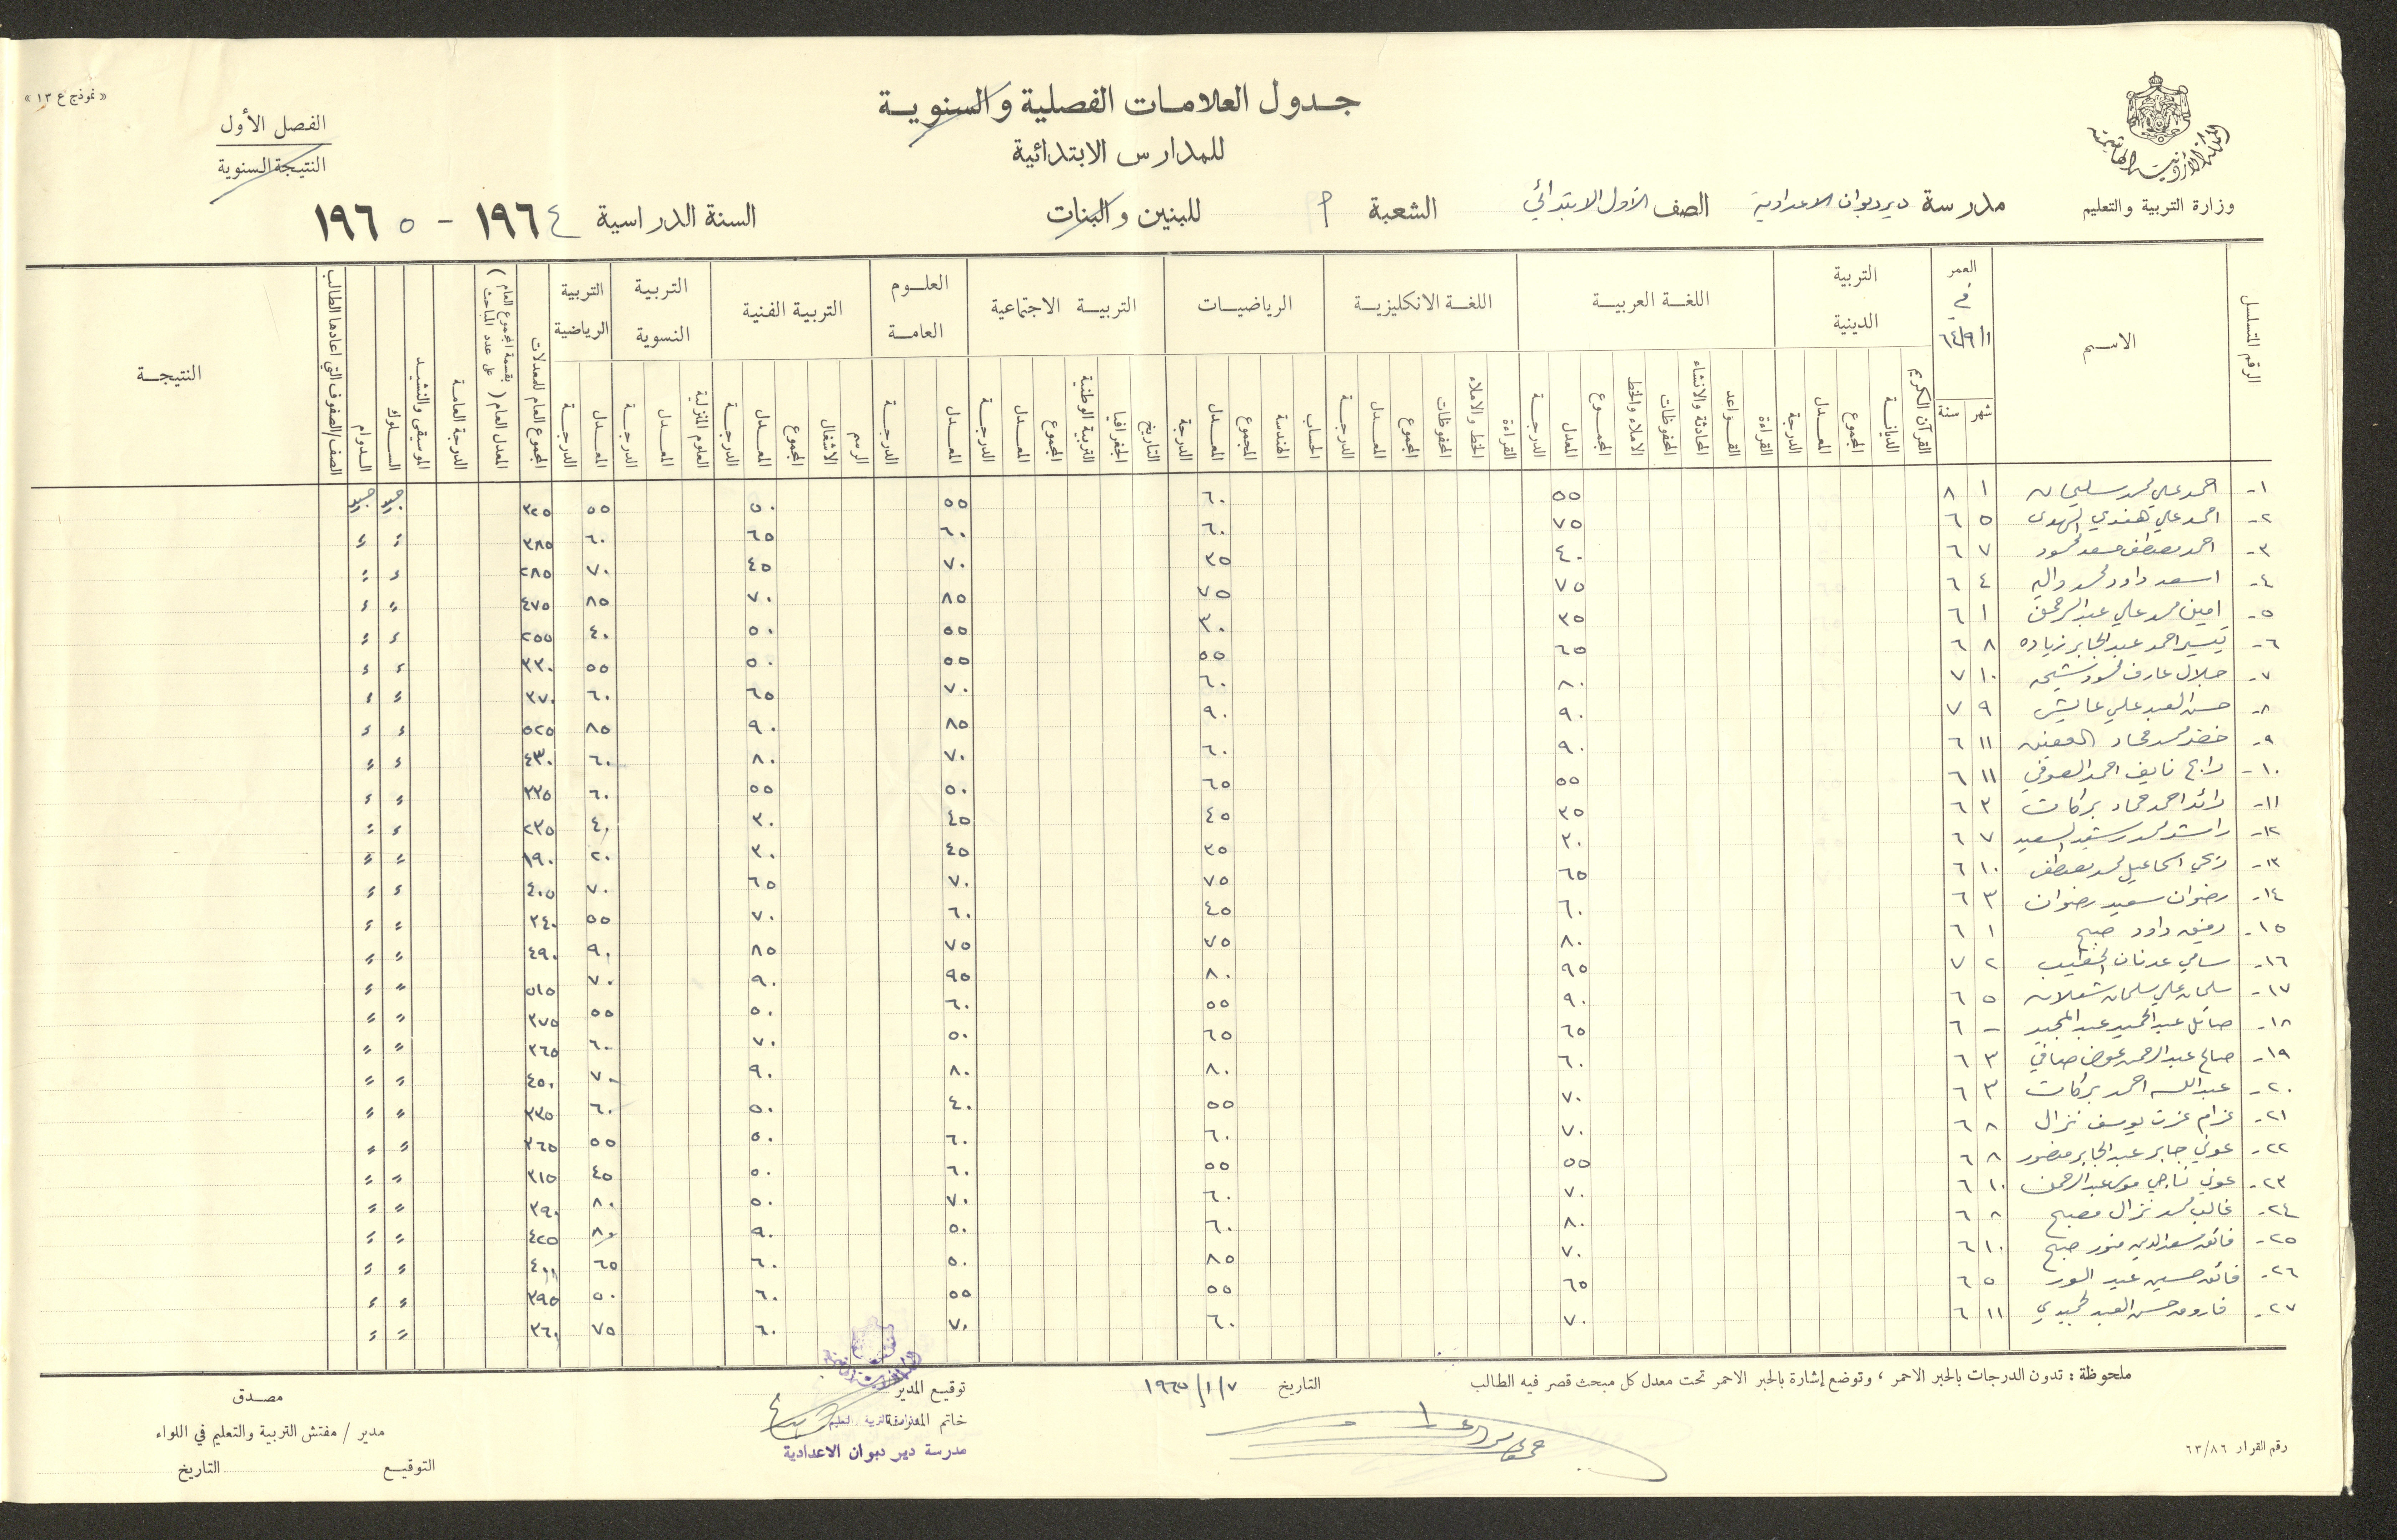 « نموذج ع ١٣ »
جدول العلامات الفصلية والسنوية
للمدارس الابتدائية
الفصل الأول
النتيجة السنوية
المملكة الاردنية الهاشمية
وزارة التربية والتعليم
مدرسة ديرديوان الاعدادية الصف الأول الابتدائي الشعبة أ للبنين والبنات السنة الدراسية ١٩٦٤ - ١٩٦٥
الرقم المتسلسل الاسم العمر في ٦٤/٩/١ التربية الدينية اللغة العربية اللغة الانكليزية الرياضيات التربية الاجتماعية العلوم العامة التربية الفنية التربية النسوية التربية الرياضية المجموع العام للمعدلات المعدل العام ( بقسمة المجموع العام على عدد المباحث ) الدرجة العامة الموسيقى والنشيد السلوك الدوام الصف/الصفوف التي اعادها الطالب النتيجة
شهر سنة القرآن الكريم الديانة المجموع المعدل الدرجة القراءة القواعد المحادثة والانشاء المحفوظات الاملاء والخط المجموع المعدل الدرجة القراءة الخط والاملاء المحفوظات المجموع المعدل الدرجة الحساب الهندسة المجموع المعدل الدرجة التاريخ الجغرافيا التربية الوطنية المجموع المعدل الدرجة المعدل الدرجة الرسم الاشغال المجموع المعدل الدرجة العلوم المنزلية المعدل الدرجة المعدل الدرجة
١- احمد علي محمد سليمان ١ ٨ ٥٥ ٦٠ ٥٥ ٥٠ ٥٥ ٣٢٥ جيد جيد
٢- احمد علي هندي المهدي ٥ ٦ ٧٥ ٦٠ ٦٠ ٦٥ ٦٠ ٣٨٥ " "
٣- احمد مصطفى مسعد محمود ٧ ٦ ٤٠ ٣٥ ٧٠ ٤٥ ٧٠ ٢٨٥ " "
٤- اسعد داود محمد ٤ ٦ ٧٥ ٧٥ ٨٥ ٧٠ ٨٥ ٤٧٥ " "
٥- امين محمد علي عبد الرحمن ١ ٦ ٣٥ ٣٠ ٥٥ ٥٠ ٤٠ ٢٥٥ " "
٦- تيسير احمد عبد الجابر زياده ٨ ٦ ٦٥ ٥٥ ٥٥ ٥٠ ٥٥ ٣٣٠ " "
٧- جلال عارف محمود شيحه ١٠ ٧ ٨٠ ٦٠ ٧٠ ٦٥ ٦٠ ٣٧٠ " "
٨- حسن العبد علي عايش ٩ ٧ ٩٠ ٩٠ ٨٥ ٩٠ ٨٥ ٥٢٥ " "
٩- خضر محمد ١١ ٦ ٩٠ ٦٠ ٧٠ ٨٠ ٦٠ ٤٣٠ " "
١٠- رابح نايف احمد العوفي ١١ ٦ ٥٥ ٦٥ ٥٠ ٥٥ ٦٠ ٣٣٥ " "
١١- رائد احمد حماد بركات ٣ ٦ ٣٥ ٤٥ ٤٥ ٣٠ ٤٠ ٢٣٥ " "
١٢- راشد محمد رشيد السعيد ٧ ٦ ٣٠ ٣٥ ٤٥ ٣٠ ٢٠ ١٩٠ " "
١٣- ربحي اسماعيل محمد مصطفى ١٠ ٦ ٦٥ ٧٥ ٧٠ ٦٥ ٧٠ ٤٠٥ " "
١٤- رضوان سعيد رضوان ٣ ٦ ٦٠ ٤٥ ٦٠ ٧٠ ٥٥ ٣٤٠ " "
١٥- رفيق داود صبح ١ ٦ ٨٠ ٧٥ ٧٥ ٨٥ ٩٠ ٤٩٠ " "
١٦- سامي عدنان الخطيب ٢ ٧ ٩٥ ٨٠ ٩٥ ٩٠ ٧٠ ٥١٥ " "
١٧- سلمان علي سلمان شعلان ٥ ٦ ٩٠ ٥٥ ٦٠ ٥٠ ٥٥ ٣٧٥ " "
١٨- صائل عبد الحميد عبد المجيد - ٦ ٦٥ ٦٥ ٥٠ ٧٠ ٦٠ ٣٦٥ " "
١٩- صالح عبد الرحمن عوض صافي ٣ ٦ ٦٠ ٨٠ ٨٠ ٩٠ ٧٠ ٤٥٠ " "
٢٠- عبد الله احمد بركات ٣ ٦ ٧٠ ٥٥ ٤٠ ٥٠ ٦٠ ٣٣٥ " "
٢١- عزام عزت يوسف نزال ٨ ٦ ٧٠ ٦٠ ٦٠ ٥٠ ٥٥ ٣٦٥ " "
٢٢- عوني جابر عبد الجابر منصور ٨ ٦ ٥٥ ٥٥ ٦٠ ٥٠ ٤٥ ٣١٥ " "
٢٣- عوني ناجي موسى عبد الرحمن ١٠ ٦ ٧٠ ٦٠ ٧٠ ٥٠ ٨٠ ٣٩٠ " "
٢٤- غالب محمد نزال مصبح ٨ ٦ ٨٠ ٦٠ ٥٠ ٩٠ ٨٠ ٤٢٥ " "
٢٥- فائق سعد الدين منور صبح ١٠ ٦ ٧٠ ٨٥ ٥٠ ٦٠ ٦٥ ٤٠٠ " "
٢٦- فائق حسين عيد ٥ ٦ ٦٥ ٥٥ ٥٥ ٦٠ ٥٠ ٣٩٥ " "
٢٧- فاروق حسن العبد حميدي ١١ ٦ ٧٠ ٦٠ ٧٠ ٦٠ ٧٥ ٣٦٠ " "
ملحوظة : تدون الدرجات بالحبر الاحمر ، وتوضع إشارة بالحبر الاحمر تحت معدل كل مبحث قصر فيه الطالب
التاريخ ١٩٦٥/١/٧
توقيع المدير
خاتم المدرسة
مدرسة دير دبوان الاعدادية
مصدق
مدير / مفتش التربية والتعليم في اللواء
التوقيع التاريخ
رقم القرار ٦٣/٨٦